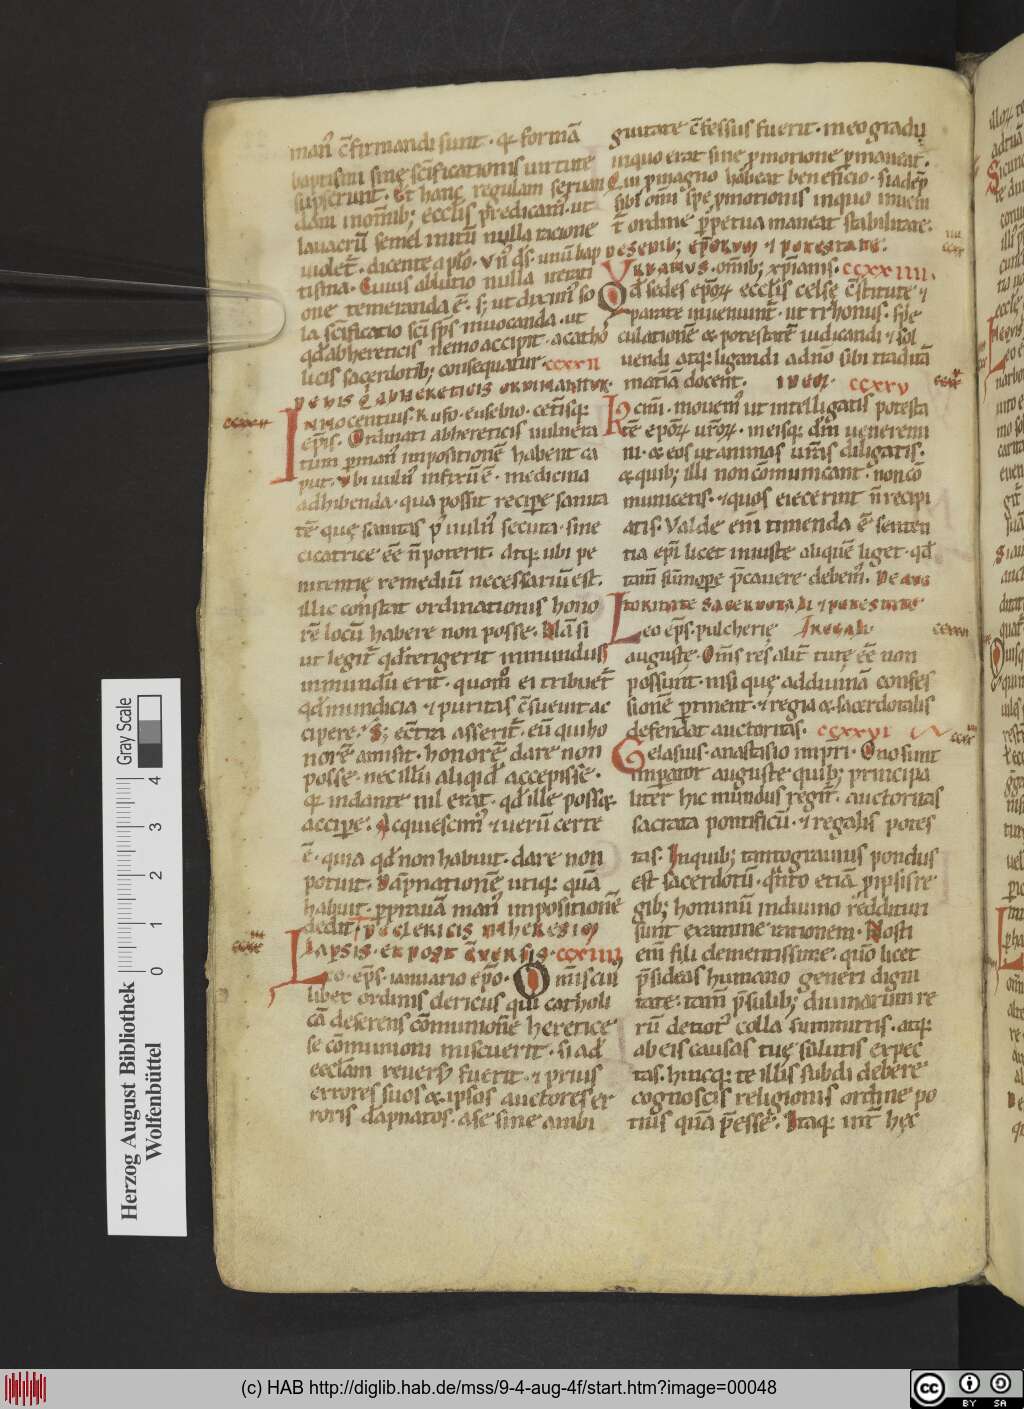 man᷒ c̄firmandi sunt · qꝛ formā
baptismi sine sc̄ificationis uirtute
supserunt · Et hanc regulam seruan
dam in om̄ib; ecclīs predicam᷒ · ut
lauacrū semel initū nulla iteratione
uiolet᷒ · dicente aplo · vn᷒ d̄s · unū bap
tisma · Cuius ablutio nulla iterati
one temeranda ē · s; ut dixim᷒ so
la sc̄ificatio sc̄i sp̄s inuocanda · ut
qd̄ abhereticis nemo accipit · acatho
licis sacerdotib; consequatur · ccxxii
de his q abhereticis ordinantur ·
Innocentius · Rufo · eusebio · ceterisq;
ep̄is · Ordinati abhereticis uulnera
tum p man᷒ impositionē habent ca
put · Vbi uuln᷒ infixū ē · medicina
adhibenda · qua possit recipe sanita
tē · quę sanitas p᷒ uuln᷒ secuta · sine
cicatrice eē n̄ poterit · Atq; ubi pe
nitentię remediū necessariū est ·
illic constat ordinationis hono
rē locū habere non posse · Nā si
ut legit᷒ qd̄ tetigerit inmundus
inmundū erit · quom̊ ei tribuet᷒
qd̄ mundicia · ⁊ puritas c̄sueuit ac
cipere · S; ec̄tra asserit᷒ · eū qui ho
norē amisit · honorē dare non
posse · nec illū aliqd̄ accepisse ·
qꝛ in dante nil erat · qd̄ ille posset
accipe · Acquiescim᷒ · ⁊ uerū certe
ē · quia qd̄ non habuit · dare non
potuit · Dāpnationē utiq; quā
habuit · p prauā man᷒ impositionē
dedit · De clericis in heresim
lapsis · et post c̄uersis · ccxxiii
Leo · ep̄s · ianuario ep̄o · Om̄is cui
libet ordinis clericus qui catholi
cā deserens cōmunionē heretice
se cōmunioni miscuerit · si ad
ecclam reuers᷒ fuerit · ⁊ prius
errores suos ⁊ ipsos auctores er
roris dāpnatos · ase sine ambi
guitate c̄fessus fuerit · in eo gradu
in quo erat sine pmotione pmaneat ·
Qui p magno habeat beneficio · si adēp
ta sibi om̄i spe pmotionis in quo inueni
t᷒ ordine ppetua maneat stabilitate ·
De sedib; ep̄orum ⁊ potestate ·
Vrbanus · om̄ib; xp̄ianis · ccxxiiii ·
Qd̄ sedes ep̄oꝝ ecclīs celsę c̄stitute ⁊
parate inueniunt᷒ · ut thronus · spe
culationē ⁊ potestatē iudicandi ⁊ sol
uendi atq; ligandi a dn̄o sibi traditā
materiā docent · Idem · ccxxv
Rcm̄i · mouem᷒ ut intelligatis potesta
tē ep̄oꝝ ur̄oꝝ · in eisq; dm̄ ueneremi
ni · ⁊ eos ut animas ur̄as diligatis ·
⁊ quib; illi non cōmunicant · non cō
municetis · ⁊ quos eiecerint n̄ recipi
atis · Valde eni timenda ē senten
tia ep̄i licet iniuste aliquē liget · qd̄
tam̄ sūmopere p̄cauere debem᷒ · De auc
toritate sacerdotali ⁊ potestate
Leo ep̄s · pulcherię regali
auguste · Om̄s res alit᷒ tutę eē non
possunt · nisi quę ad diuinā confes
sionē ptinent · ⁊ regia ⁊ sacerdotalis
defendat auctoritas · ccxxvi
Gelasius · anastasio impri · Duo sunt
imperator auguste quib; principa
liter hic mundus regit᷒ · auctoritas
sacrata pontificū · ⁊ regalis potes
tas · In quib; tanto grauius pondus
est sacerdotū · qn̄to etiā p ipsis re
gib; hominū in diuino reddituri
sunt examine rationem · Nosti
eni fili clementissime · quo licet
p̄sideas humano generi digni
tate · tam̄ p̄sulib; diuinarum re
rū deuot᷒ colla summittis · atq;
ab eis causas tuę salutis expec
tas · hincq; te illis subdi debere
cognoscis religionis ordine po
tius quā p̄esse · Itaq; int᷒ hęc
Herzog August Bibliothek
Wolfenbüttel
0 1 2 3 4
Gray Scale
(c) HAB http://diglib.hab.de/mss/9-4-aug-4f/start.htm?image=00048
cc
BY SA